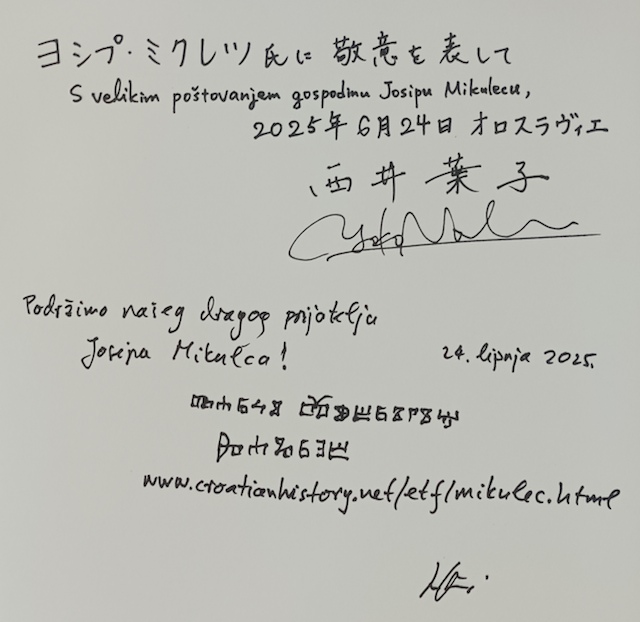 ヨシプ・ミクレツ氏に敬意を表して
S velikim poštovanjem gospodinu Josipu Mikulecu,
2025年6月24日 オロスラヴィエ
西井葉子
Podržimo našeg dragog prijatelja
Josipa Mikulca!
24. lipnja 2025.
www.croatianhistory.net/etf/mikulec.html